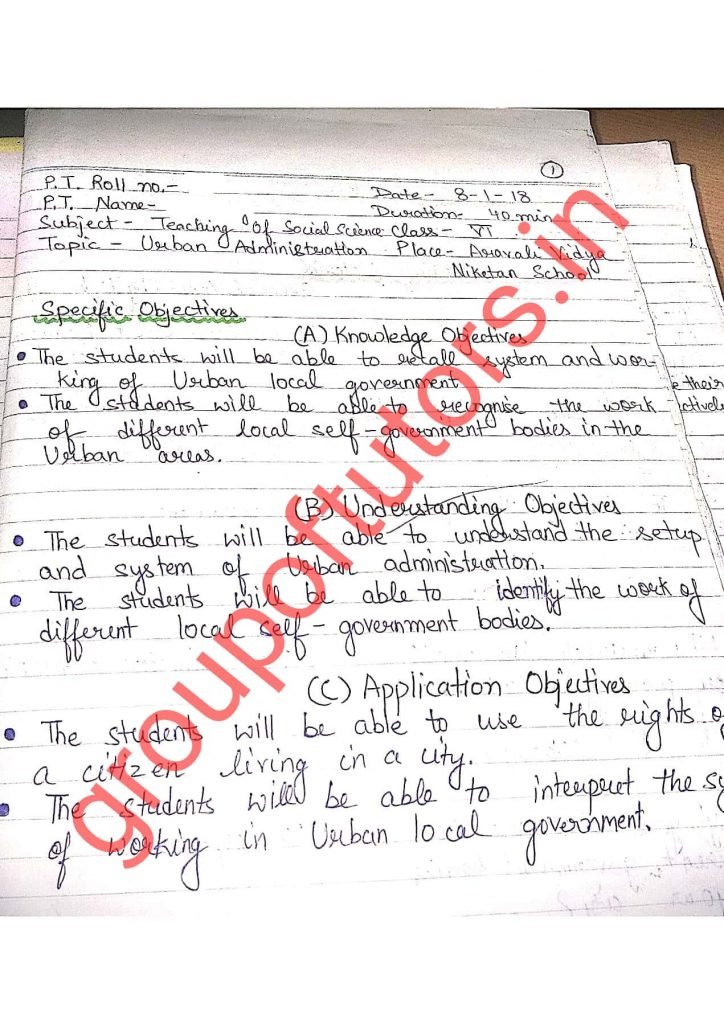 ①
P.T. Roll no.-
Date- 8-1-18
P.T. Name-
Duration- 40 min
Subject- Teaching Of Social Science Class- VI
Topic - Urban Administration Place- Aravali Vidya
Niketan School
Specific Objectives
(A) Knowledge Objectives
• The students will be able to recall system and wor-
king of Urban local government
• The students will be able to recognise the work
of different local self-government bodies in the
Urban areas.
(B) Understanding Objectives
• The students will be able to understand the setup
and system of Urban administration.
• The students will be able to identify the work of
different local self-government bodies.
(C) Application Objectives
• The students will be able to use the rights of
a citizen living in a city.
• The students will be able to interpret the sy
of working in Urban local government.
e their
ctively
groupoftutors.in